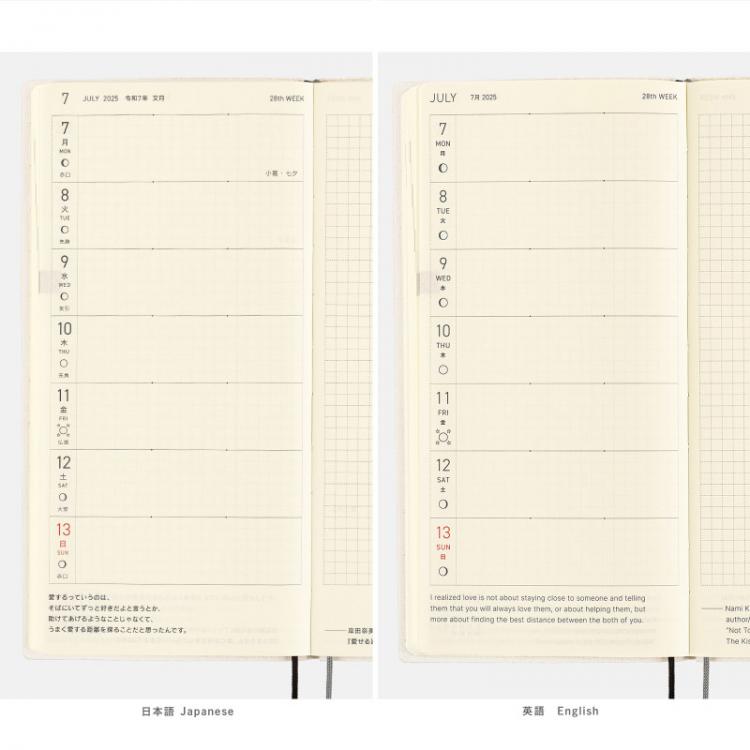 7 JULY 2025 令和7年 文月 28th WEEK
7
月
MON
赤口
小暑・七夕
8
火
TUE
先勝
9
水
WED
友引
10
木
THU
先負
11
金
FRI
仏滅
12
土
SAT
大安
13
日
SUN
赤口
愛するっていうのは、
そばにいてずっと好きだよと言うとか、
助けてあげるようなことじゃなくて、
うまく愛する距離を探ることだと思ったんです。
日本語 Japanese
JULY 7月 2025 28th WEEK
7
MON
月
8
TUE
火
9
WED
水
10
THU
木
11
FRI
金
12
SAT
土
13
SUN
日
I realized love is not about staying close to someone and telling
them that you will always love them, or about helping them, but
more about finding the best distance between the both of you.
Nami K
author/
"Not To
The Kis
英語 English